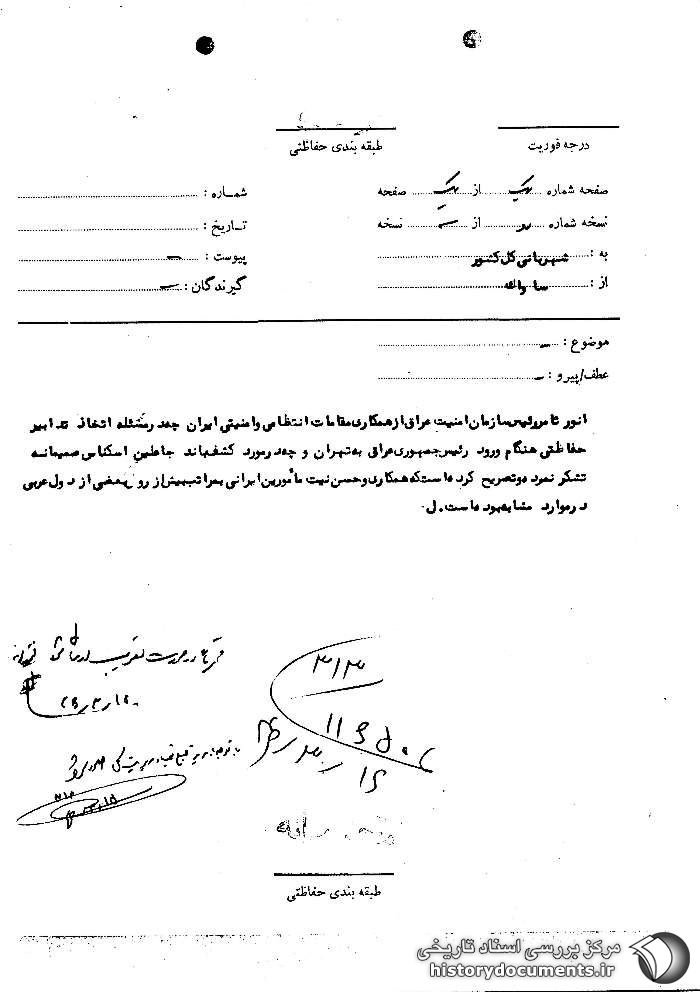 درجه فوریت
طبقه بندی حفاظتی
صفحه شماره یک از یک صفحه
شماره :
نسخه شماره از نسخه
تاریخ :
به : شهربانی کل کشور
پیوست : -
از : ساواک
گیرندگان : -
موضوع : -
عطف/پیرو : -
انور ثامر رئیس سازمان امنیت عراق از همکاری مقامات انتظامی و امنیتی ایران چه در مسئله اتخاذ تدابیر
حفاظتی هنگام ورود رئیس جمهوری عراق به تهران و چه در مورد کشف باند جاعلین اسکناس صمیمانه
تشکر نموده و تصریح کرده است که همکاری و حسن نیت مأمورین ایرانی بمراتب بیش از روش بعضی از دول عربی
در موارد مشابه بوده است. ل
۳۱۳
طبقه بندی حفاظتی
مرکز بررسی اسناد تاریخی
historydocuments.ir